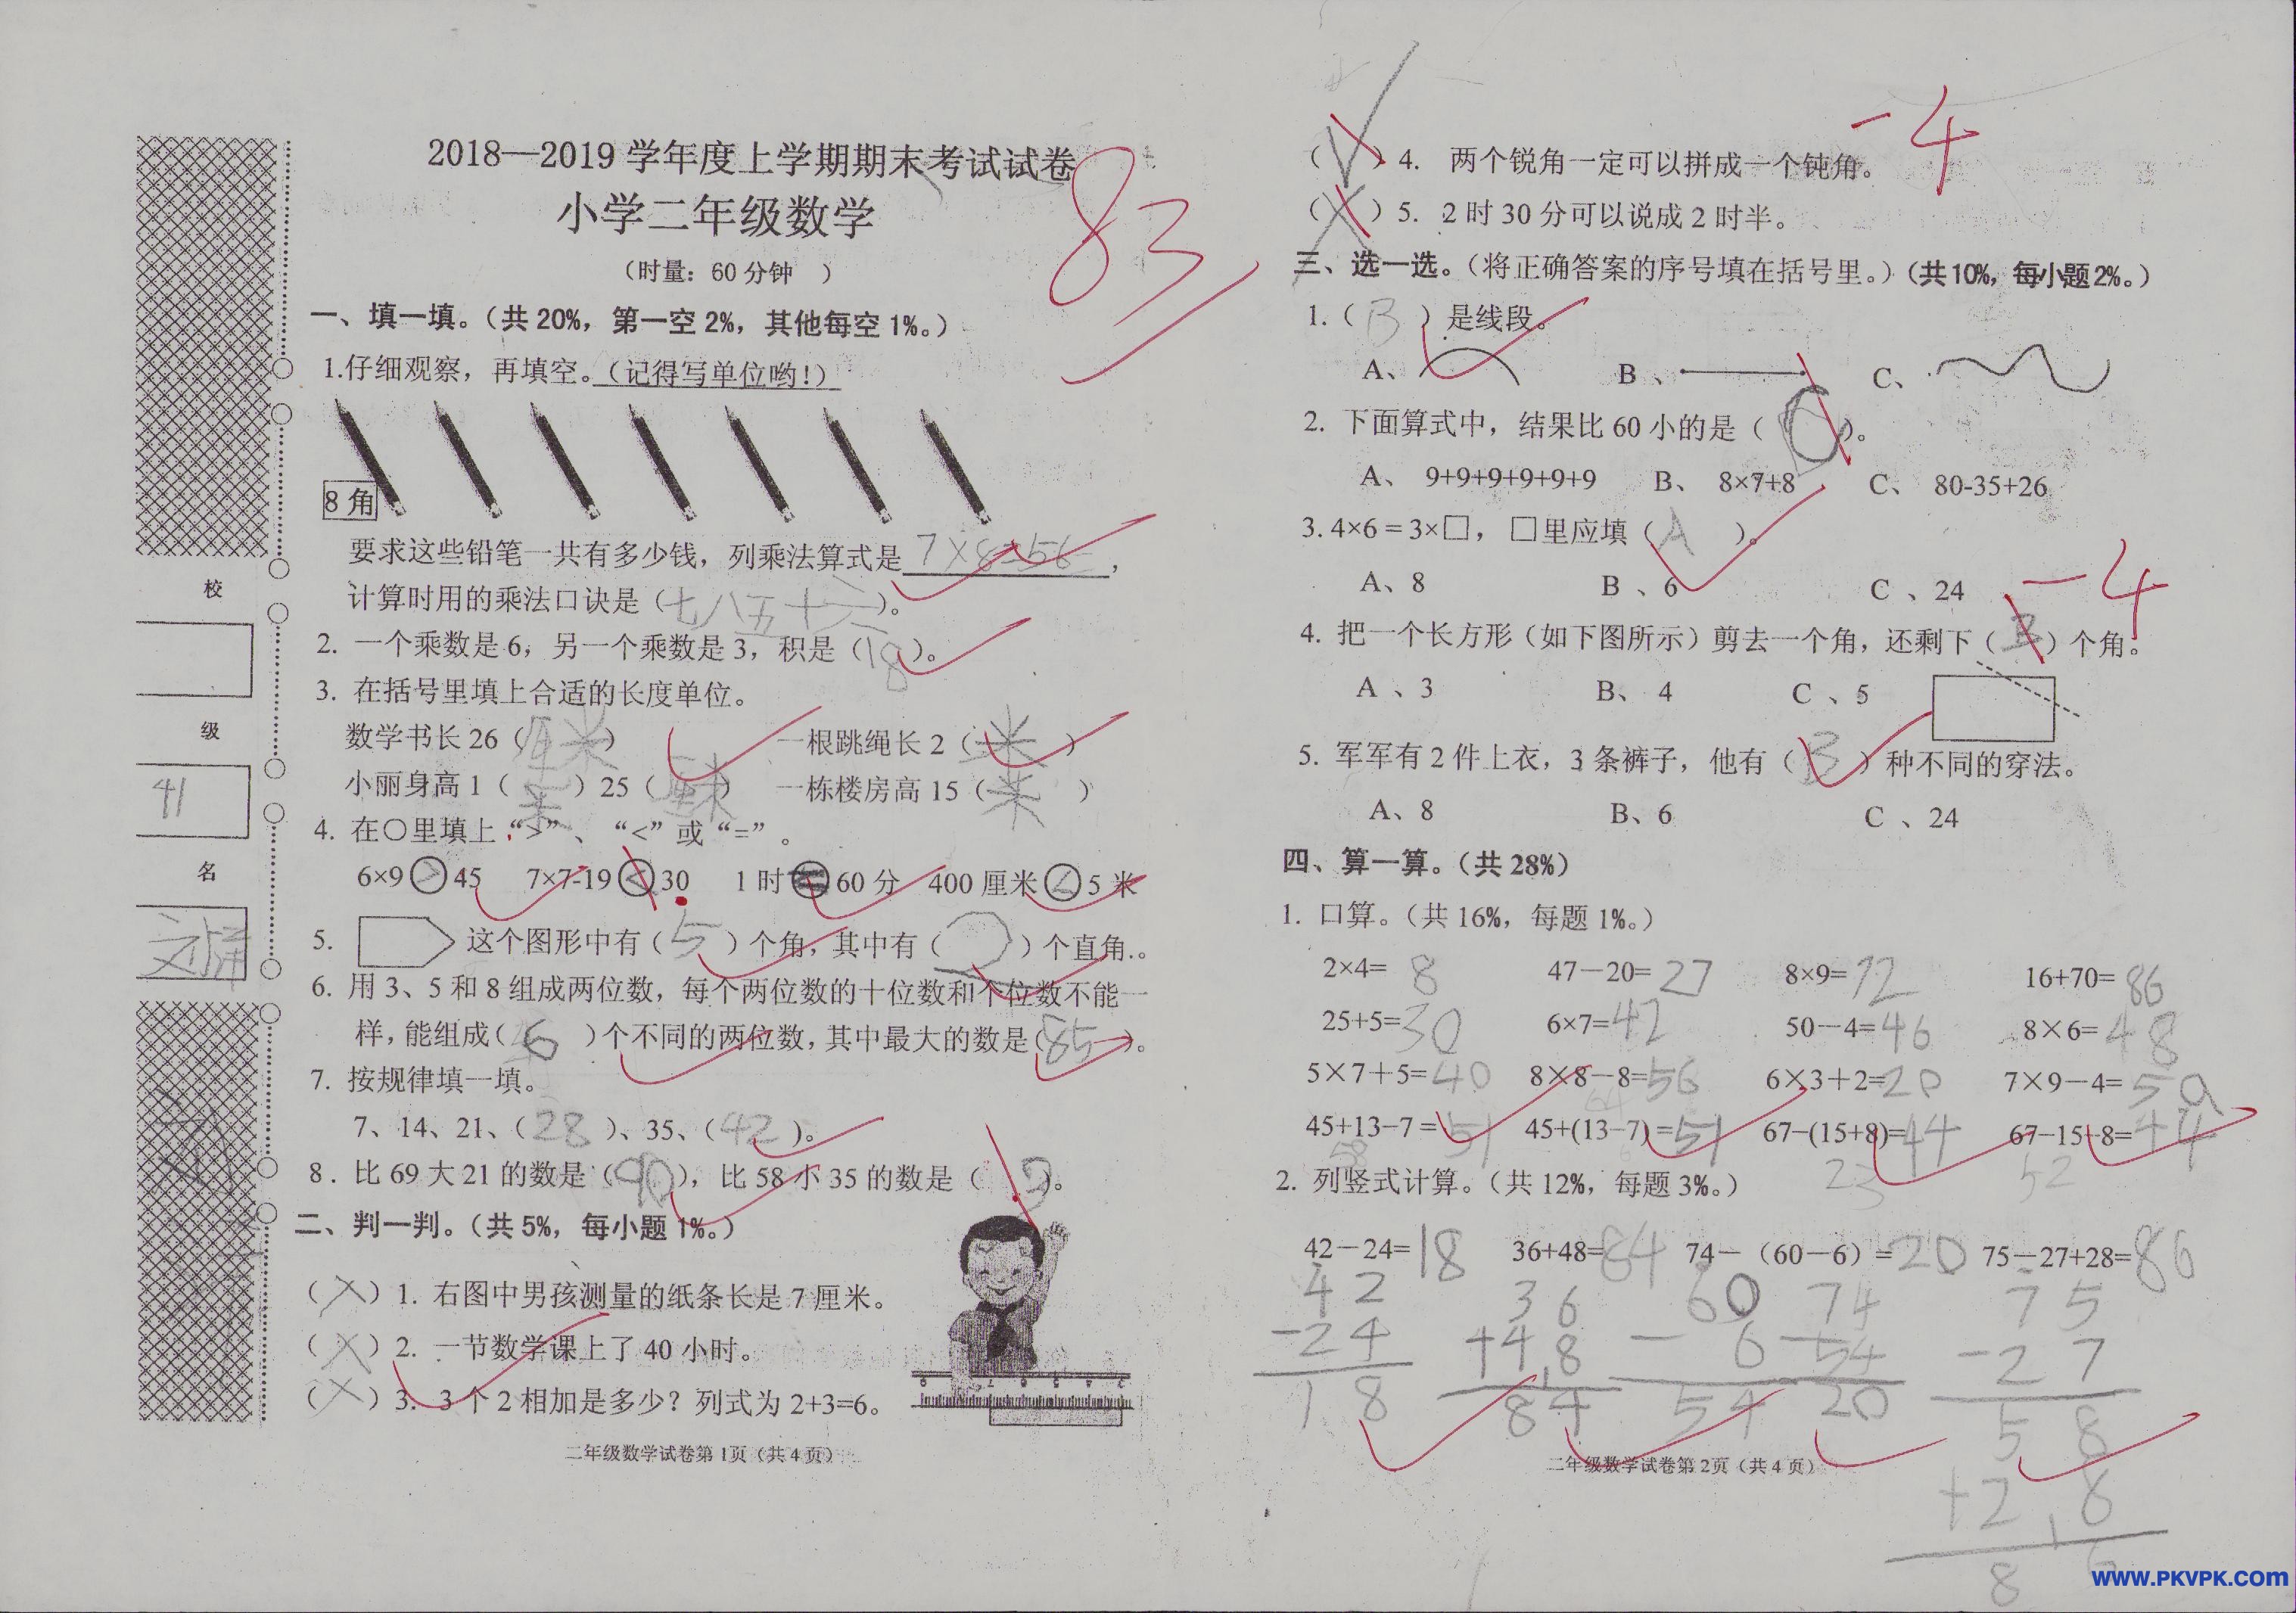 2018—2019学年度上学期期末考试试卷
小学二年级数学
（时量：60分钟 ）
83
一、填一填。（共20%，第一空2%，其他每空1%。）
1.仔细观察，再填空。（记得写单位哟！）
8角
要求这些铅笔一共有多少钱，列乘法算式是7×8=56，
计算时用的乘法口诀是（七八五十六）。
2. 一个乘数是6，另一个乘数是3，积是（18）。
3. 在括号里填上合适的长度单位。
数学书长26（厘米） 一根跳绳长2（米）
小丽身高1（米）25（厘米） 一栋楼房高15（米）
4. 在○里填上“>”、“<”或“=”。
6×9>45 7×7-19<30 1时=60分 400厘米<5米
5. 这个图形中有（5）个角，其中有（ ）个直角。
6. 用3、5和8组成两位数，每个两位数的十位数和个位数不能一
样，能组成（6）个不同的两位数，其中最大的数是（85）。
7. 按规律填一填。
7、14、21、（28）、35、（42）。
8. 比69大21的数是（90），比58小35的数是（ ）。
二、判一判。（共5%，每小题1%。）
（×）1. 右图中男孩测量的纸条长是7厘米。
（×）2. 一节数学课上了40小时。
（×）3. 3个2相加是多少？列式为2+3=6。
二年级数学试卷第1页（共4页）
校
级
41
名
-4
（√）4. 两个锐角一定可以拼成一个钝角。
（×）5. 2时30分可以说成2时半。
三、选一选。（将正确答案的序号填在括号里。）（共10%，每小题2%。）
1.（B）是线段。
A、 B、 C、
2. 下面算式中，结果比60小的是（C）。
A、 9+9+9+9+9+9 B、 8×7+8 C、 80-35+26
3. 4×6=3×□，□里应填（A）。
A、8 B、6 C、24
-4
4. 把一个长方形（如下图所示）剪去一个角，还剩下（B）个角。
A、3 B、4 C、5
5. 军军有2件上衣，3条裤子，他有（B）种不同的穿法。
A、8 B、6 C、24
四、算一算。（共28%）
1. 口算。（共16%，每题1%。）
2×4=8 47－20=27 8×9=72 16+70=86
25+5=30 6×7=42 50－4=46 8×6=48
5×7＋5=40 8×8－8=56 6×3＋2=20 7×9－4=59
45+13−7=51 45+(13−7)=51 67−(15+8)=44 67−15−8=44
58 23 52
2. 列竖式计算。（共12%，每题3%。）
42－24=18 36+48=84 74－（60－6）=20 75－27+28=86
42 36 60 74 75
-24 +48 -6 -54 -27
18 84 54 20 58
+28
86
二年级数学试卷第2页（共4页）
www.PKVPK.com